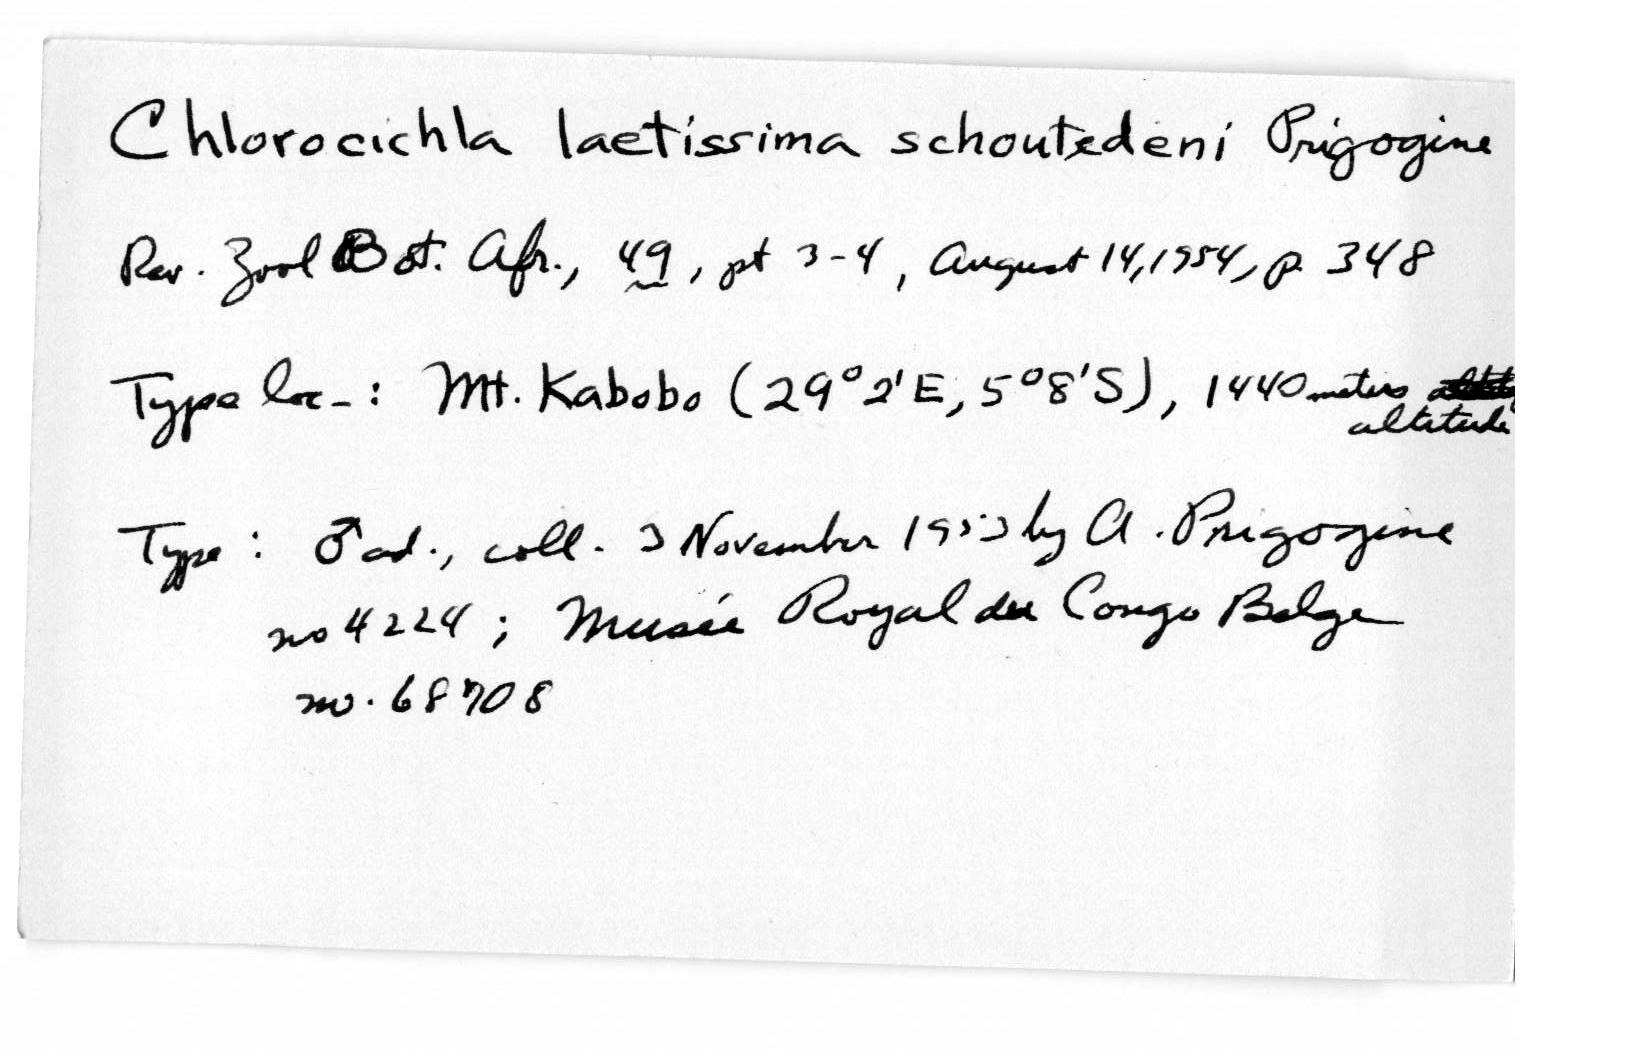 Chlorocichla laetissima schoutedeni Prigogine
Rev. Zool Bot. Afr., 49, pt 3-4, August 14, 1954, p. 348
Type loc-: Mt. Kabobo (29°2'E, 5°8'S), 1440 meters
altitude
Type: ♂ ad., coll. 3 November 1953 by A. Prigogine
no 4224; Musée Royal du Congo Belge
no. 68708